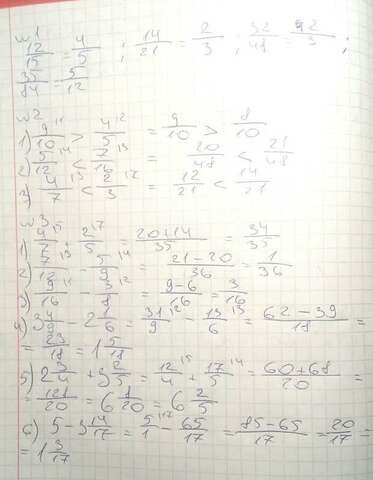 №1
12/15 = 4/5 ; 14/21 = 2/3 ; 32/48 = 2/3 ;
35/84 = 5/12
№2
1) 9/10 > 4/5 = 9/10 > 8/10
2) 5/12 < 7/16 = 20/48 < 21/48
3) 4/7 < 2/3 = 12/21 < 14/21
№3
1) 4/7 + 2/5 = 20+14/35 = 34/35
2) 7/12 - 5/9 = 21-20/36 = 1/36
3) 9/16 - 3/8 = 9-6/16 = 3/16
4) 3 4/9 - 2 1/6 = 31/9 - 13/6 = 62-39/18 =
= 23/18 = 1 5/18
5) 2 3/4 + 3 2/5 = 12/4 + 17/5 = 60+68/20 =
= 128/20 = 6 8/20 = 6 2/5
6) 5 - 3 14/17 = 5/1 - 65/17 = 85-65/17 = 20/17 =
= 1 3/17